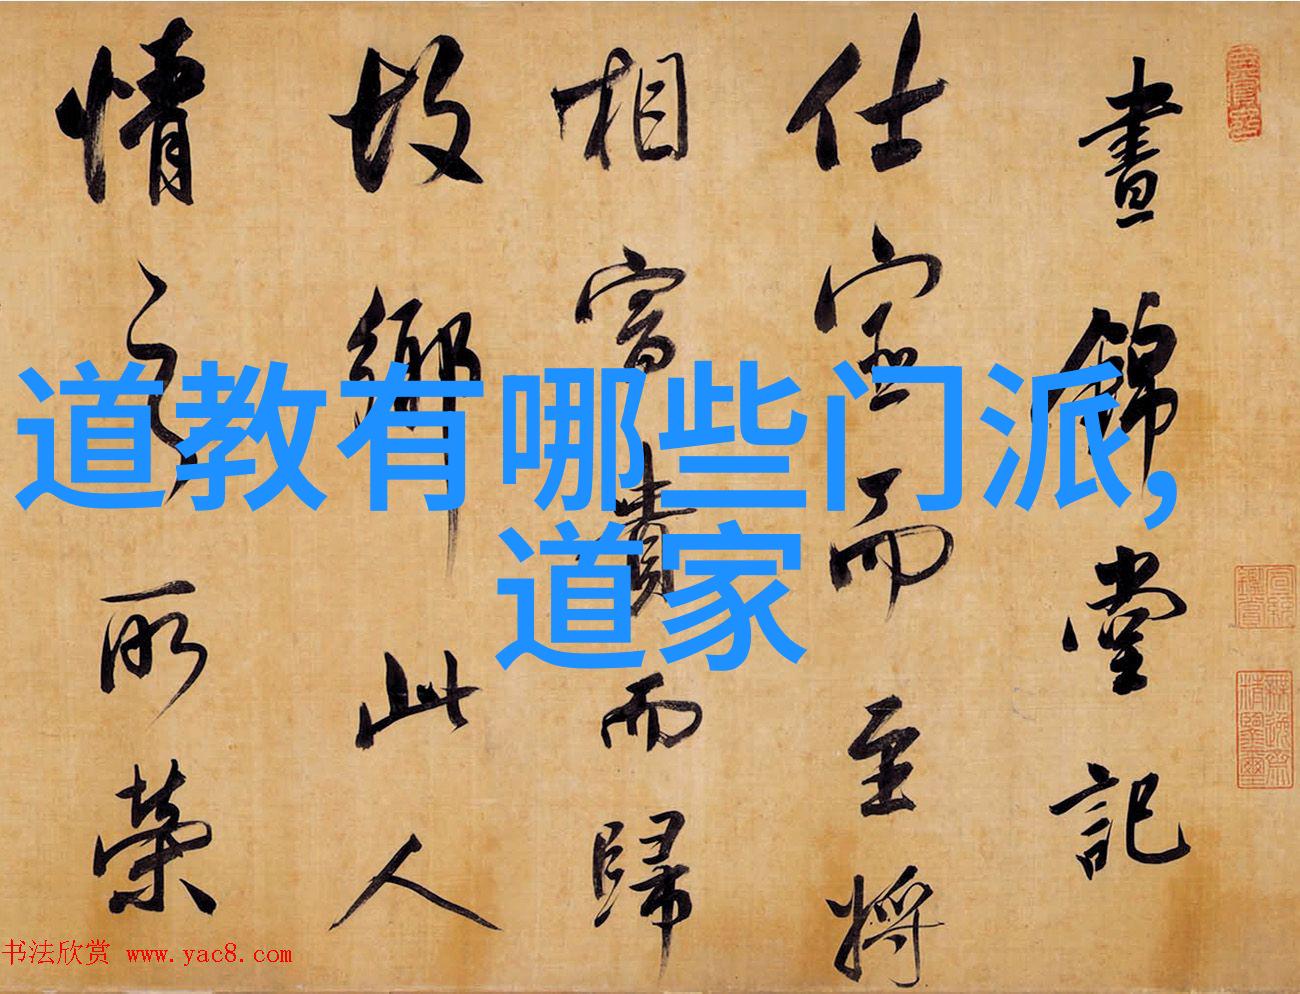 道教有哪些门派,
道家
晝錦堂記
仕宦而至將
相富貴而歸
故鄉此人
情之所榮
书法欣赏 www.yac8.com